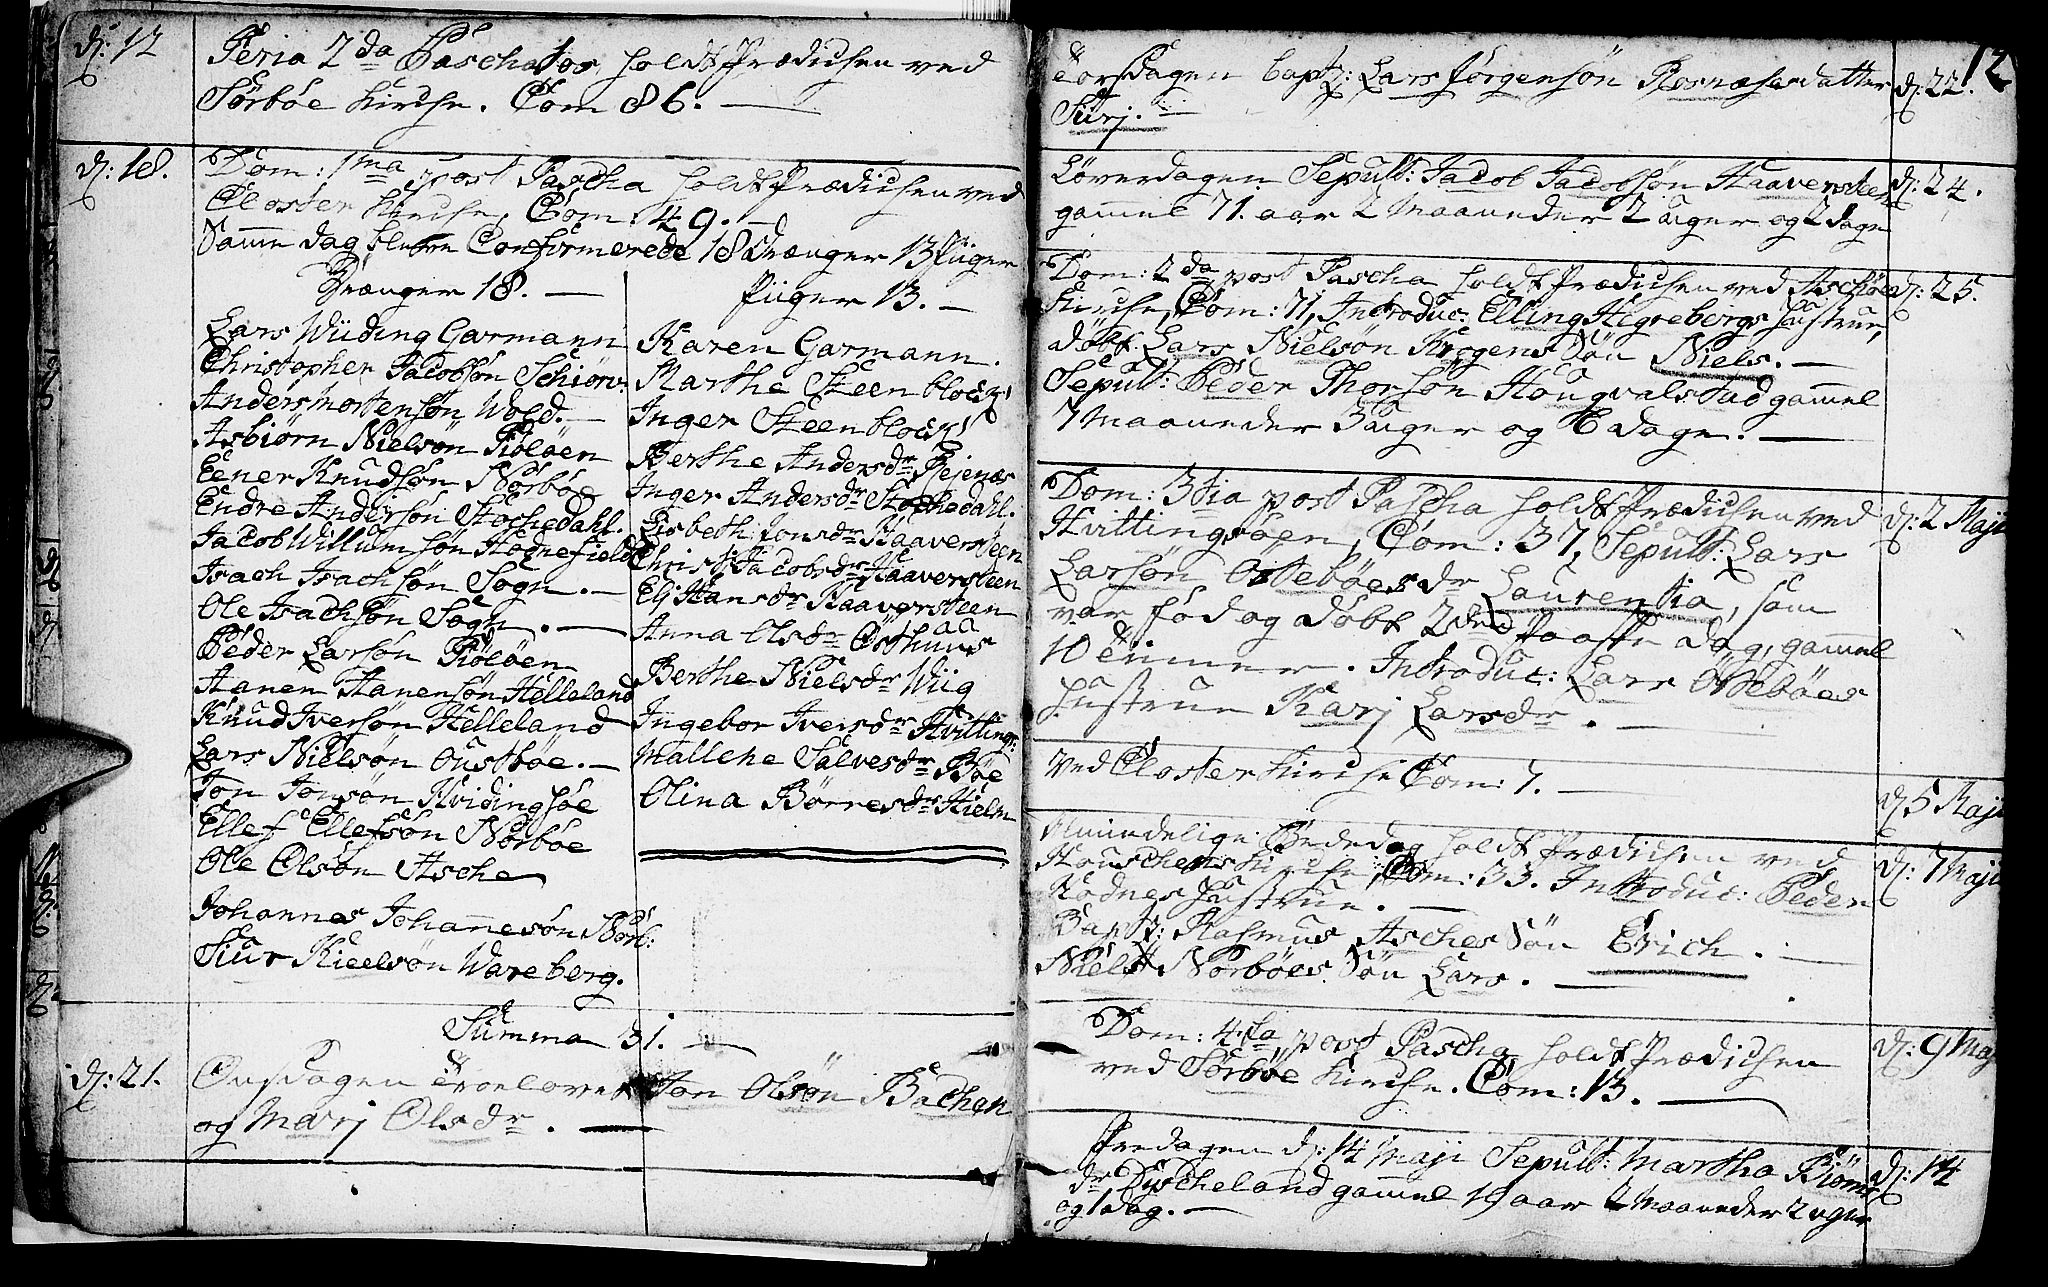 d: 12
Feria 2da Paschatos holdt Prædichen ved
Sörböe Kirche. Com 86.
d: 18.
Dom: 1ma post Pascha holdt Prædichen ved
Closter Kirche, Com: 49.
Samme dag bleve Confirmerede 18 Drænger 13 Piiger
Drænger 18.
Lars Wiiding Garmann
Christopher Jacobsön Schiörv:
Anders Mortensön Wold.
Asbiörn Nielsön Fiölöen
Eener Knudsön Nörböe
Endre Andersön Stochedahl.
Jacob Willumsön Hognefield
Isach Isachsön Sogn.
Ole Isachsön Sogn.
Peder Larsön Fiölöen
Hanen Hanensön Helleland
Knud Iversön Helleland
Lars Nielsön Oustböe.
Jon Jonsön Hvidingsöe
Ellef Ellefsön Nörböe
Ole Olsön Asche
Johannes Johannesön Nörb:
Siur Kieelsön Wareberg.
Piiger 13.
Karen Garmann.
Marthe Steenblock
Inger Steenblock
Berthe Andersdr Reienæs
Inger Andersdr Stochedahl.
Lisbeth Jonsdr Haaversteen
Christ: Jacobsdr Haaversteen
Eli Hansdr Haaversteen
Anna Olsdr Östhuus
Berthe Nielsdr Wiig
Ingebor Iversdr Hvittings:
Mallene Salvesdr Böe
Olina Börresdr Hielm
Summa 31.
d: 21.
Onsdagen Troelovet Jon Olsön Bachen
og Marj Olsdr.
12
Torsdagen bapt: Lars Jörgensön Rosnæsesdatter
Surj.
d: 22.
Löverdagen Sepult: Jacob Jacobsön Haaversteen
gammel 71. aar 2 Maaneder 2 uger og 2 dage
d: 24.
Dom: 2da post Pascha holdt Prædichen ved Aschöe
Kirche, Com: 71, Introduc: Elling Higrebergs hustrue,
döbt Lars Nielsön Krogens Sön Niels.
Sepult: Peder Thorsön Hougvalstad gammel
7 Maaneder 3 uger og 6 dage.
d: 25.
Dom: 3tia post Pascha holdt Prædichen ved
Hvittingsöen, Com: 37, Sepult: Lars
Larsön Otteböes dr Laurentia, som
var föd og döbt 2den Paaske dag, gammel
10 timer. Introduc: Lars Otteböes
hustrue Karj Larsdr.
d: 2 Maji
Ved Closter Kirche Com: 7.
d: 5 Maji
Almindelige Bededag holdt Prædichen ved
Houschens Kirche, Com: 33. Introduc: Peder
Rödnes hustrue.
Bapt: Rasmus Asches Sön Erich.
Niels Nörböes Sön Lars.
d: 7 Maji
Dom: 4ta post Pascha holdt Prædichen
ved Sörböe Kirche. Com: 13.
d: 9 Maj
Fredagen d: 14 Maji Sepult: Martha Biörns
dr Dyscheland gammel 19 aar 2 Maaneder 2 uger
og 1 dag.
d: 14